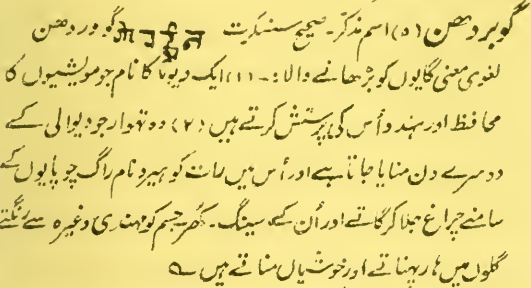 گوبردھن (ہ) اسم مذکر۔ صحیح سنسکرت गोवर्द्धन گووردھن
لغوی معنی گایوں کو بڑھانے والا :۔ (۱) ایک دیوتا کا نام جو مویشیوں کا
محافظ اور ہندو اُس کی پرستش کرتے ہیں (۲) وہ تہوار جو دیوالی کے
دوسرے دن منایا جاتا ہے اور اُس میں رات کو ہیرو نام راگ چوپایوں کے
سامنے چراغ جلا کر گاتے اور اُن کے سینگ۔ کھُر جسم کو مہندی وغیرہ سے رنگتے
گلوں میں ہار پہناتے اور خوشیاں مناتے ہیں ؎